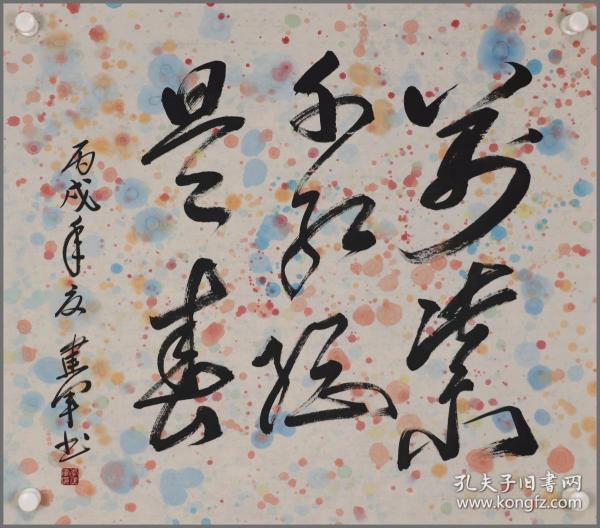 萬紫
千紅總
是春
丙戌年夏建军书
孔夫子旧书网
www.kongfz.com